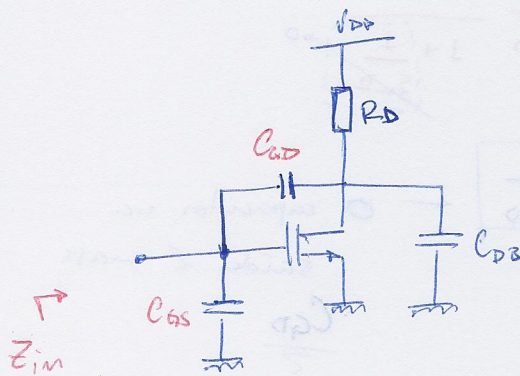 VDD
RD
CGD
CDB
CGS
Zin